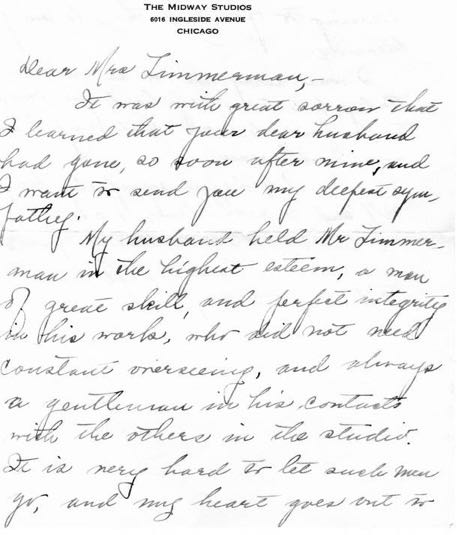 THE MIDWAY STUDIOS
6016 INGLESIDE AVENUE
CHICAGO
Dear Mrs Zimmerman,-
It was with great sorrow that
I learned that your dear husband
had gone, so soon after mine, and
I want to send you my deepest sym-
pathy.
My husband held Mr Zimmer-
man in the highest esteem, a man
of great skill, and perfect integrity
in his work, who did not need
constant overseeing, and always
a gentleman in his contacts
with the others in the studio.
It is very hard to let such men
go, and my heart goes out to